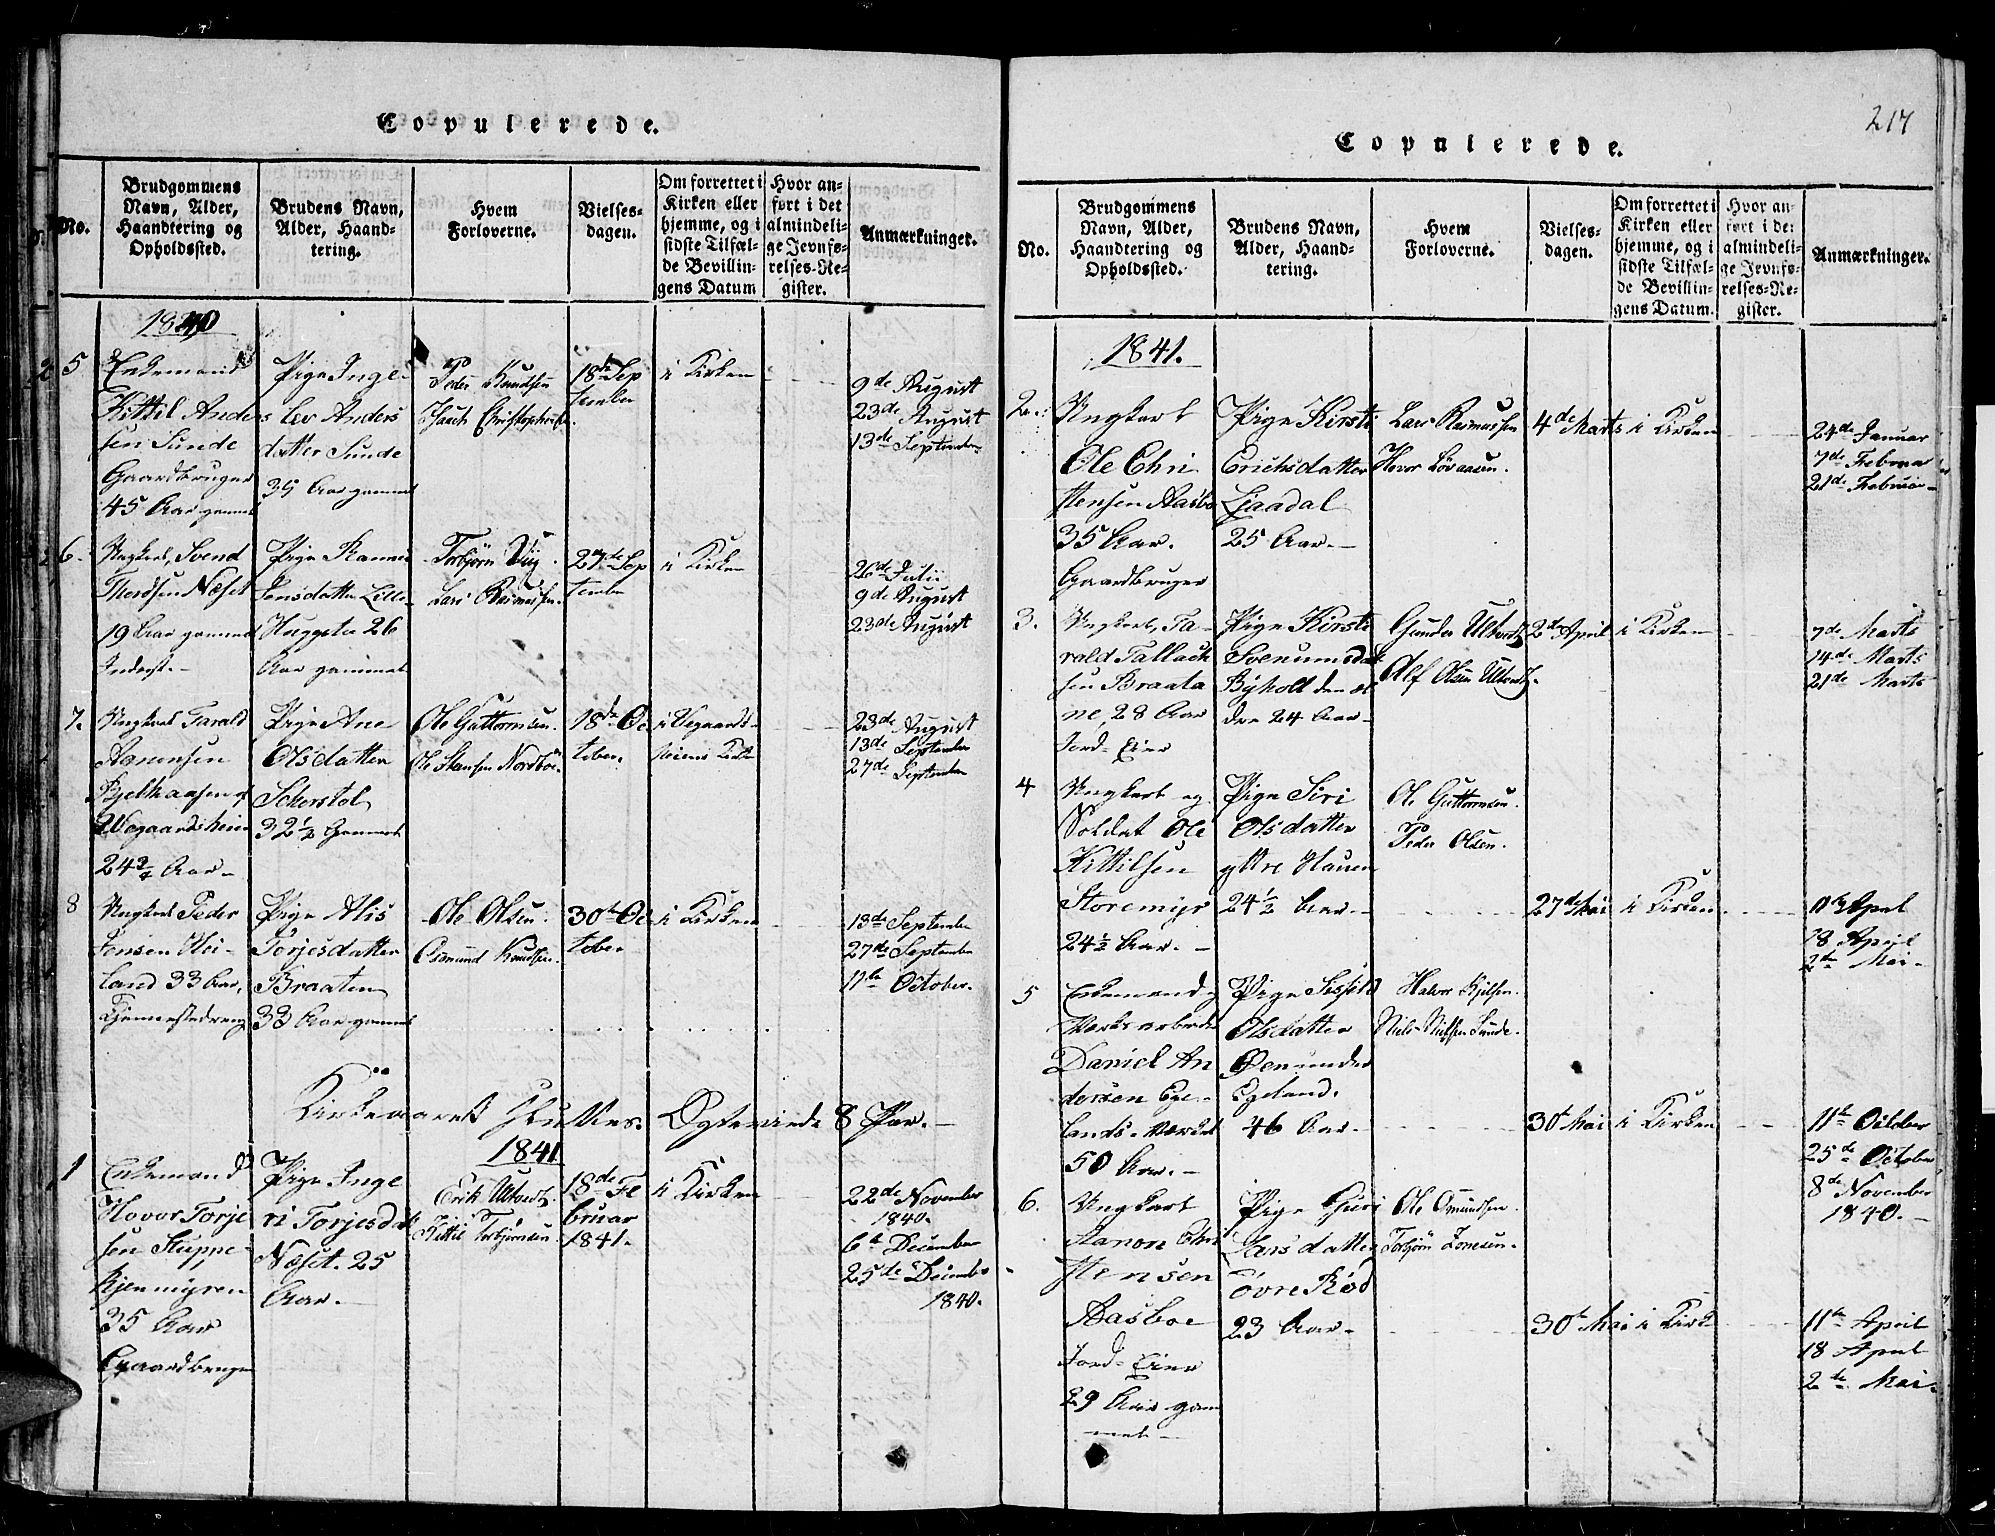 217
Copulerede.
No.
Brudgommens
Navn, Alder,
Haandtering og
Opholdssted.
Brudens Navn,
Alder, Haand-
tering.
Hvem
Forloverne.
Vielses-
dagen.
Om forrettet i
Kirken eller
hjemme, og i
sidste Tilfæl-
de Bevillin-
gens Datum
Hvor an-
ført i det
almindeli-
ge Jevnfø-
relses-Re-
gister.
Anmærkninger.
1840
5
Enkemand
Kittil Anders
sen Sunde
Gaardbruger
45 Aar gammel
Pige Inge-
lev Anders
datter Sunde
35 Aar gammel
Peder Knudsen
18de Sep
tember
i Kirken
9de August
23de August
13de September
6.
Ungkarl, Svend
Thordsen Næset
19 Aar gammel
Inderst.
Pige
Jensdatter Lille
26
Aar gammel
Torbjørn
Lars Rasmussen
27de Sep
tember
i Kirken
26de Julii
9de August
23de August
7.
Ungkarl Tarald
Aanonsen
Wegaardsheien
24 3/4 Aar
Pige Ane
Olsdatter
32 1/2 Gammel
Ole Guttormsen.
18de Oc
tober.
i Vegaards-
heiens Kirke
23de August
13de September
27de September
8
Ungkarl Peder
Jensen
land 33 Aar,
Tjenestedreng
Pige Alis
Torjesdatter
Braaten
33 Aar gammel
Ole Olsen.
Osmund Knudsen.
30te Oc
tober
i Kirken
13de September
27de September
11te October.
Kirkeaaret sluttes. Ægteviede 8 Par.
1841
1
Enkemand
Hovor Torje
sen
Kjenmyren
35 Aar
Gaardbruger
Pige Inge
ri Torjesdat
Næset. 25
Aar.
Erik
Kittil Torbjørnsen.
18de Fe
bruar
1841.
i Kirken
22de November
1840.
6te December
25de December
1840.
Copulerede.
No.
Brudgommens
Navn, Alder,
Haandtering og
Opholdssted.
Brudens Navn,
Alder, Haand-
tering.
Hvem
Forloverne.
Vielses-
dagen.
Om forrettet i
Kirken eller
hjemme, og i
sidste Tilfæl-
de Bevillin-
gens Datum.
Hvor an-
ført i det
almindeli-
ge Jevnfø-
relses-Re-
gister.
Anmærkninger.
1841.
2.
Ungkarl
Ole Chri
stensen Aasbø
35 Aar.
Gaardbruger
Pige Kirsti
Erichsdatter
Ljaadal
25 Aar.
Lars Rasmussen
4de Marts
i Kirken
24de Januar
7de Februar
21de Februar
3.
Ungkarl, Ta-
rald Tallach
sen Braata
ne, 28 Aar
Jord-Eier
Pige Kirsti
Svenumsdat
Byholt den æl
dre 24 Aar
Gunder
Alf Olsen
2den April
i Kirken
7de Marts
14de Marts
21de Marts
4
Ungkarl og
Soldat Ole
Kittilsen
Storemyr
24 1/2 Aar.
Pige Siri
Olsdatter
yttre Hauen
24 1/2 Aar
Ole Guttormsen.
Peder Olsen.
27de Mai
i Kirken
11te April
18 April
2den Mai
5
Enkemand og
Værksarbeider
Daniel An
dersen Ege-
lands-Værket
50 Aar.
Pige
Olsdatter
Egeland.
46 Aar
Halvor Kjelsen.
Niels Nielsen Sunde.
30te Mai
i Kirken
11te October
25de October
8de November
1840.
6.
Ungkarl
Aanon Chri
stensen
Aasboe
Jord-Eier
29 Aar gam
mel
Pige Guri
Larsdatter
øvre Rød
23 Aar
Ole Omundsen.
Torbjørn
30te Mai
i Kirke
11te April
18 April
2de Mai.